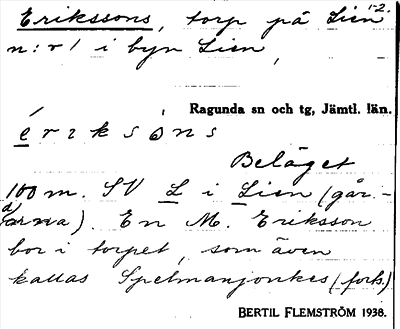 1-2.
Eriksson̲s, torp på Lien
n:r 1 i byn Lien,
Ragunda sn och tg, Jämtl. län.
é r i k s ò n s
Beläget
100 m. SV L i Lien (går-
darna). En M. Eriksson
bor i torpet, som även
kallas Spelmanjonkes (forts.)
BERTIL FLEMSTRÖM 1938.